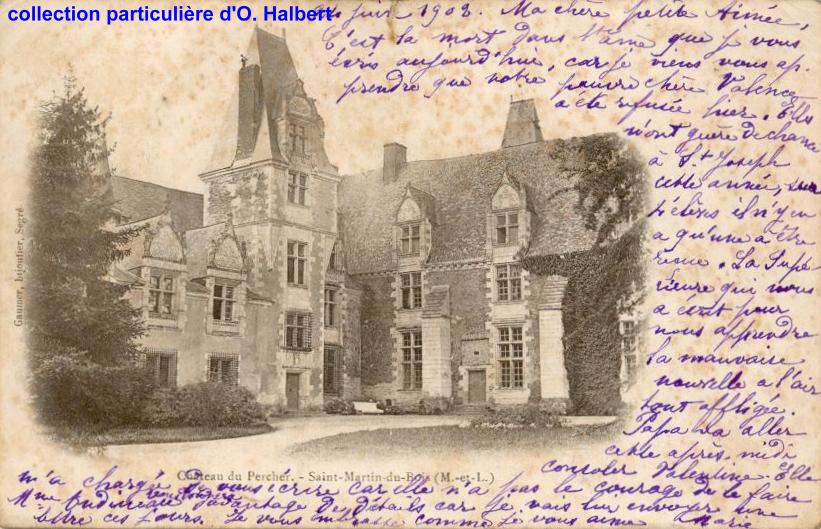 collection particulière d'O. Halbert
juin 1902. Ma chère petite Aimée,
C'est la mort dans l'âme que je vous
écris aujourd'hui, car je viens vous ap-
prendre que notre pauvre chère Valence
a été refusée hier. Elles
n'ont guère de chance
à St Joseph
cette année, sur
élèves il n'y en
a qu'une a être
reçue. La Supé-
rieure qui nous
a écrit pour
nous apprendre
la mauvaise
nouvelle a l'air
tout affligée.
Papa va aller
cette après midi
consoler Valentine. Elle
m'a chargé de vous écrire car elle n'a pas le courage de le faire
Mme davantage de détails car je vais lui envoyer une
lettre ces jours. Je vous embrasse comme je vous aime
Gaumer, bijoutier, Segré
Château du Percher. - Saint-Martin-du-Bois (M.-et-L.)